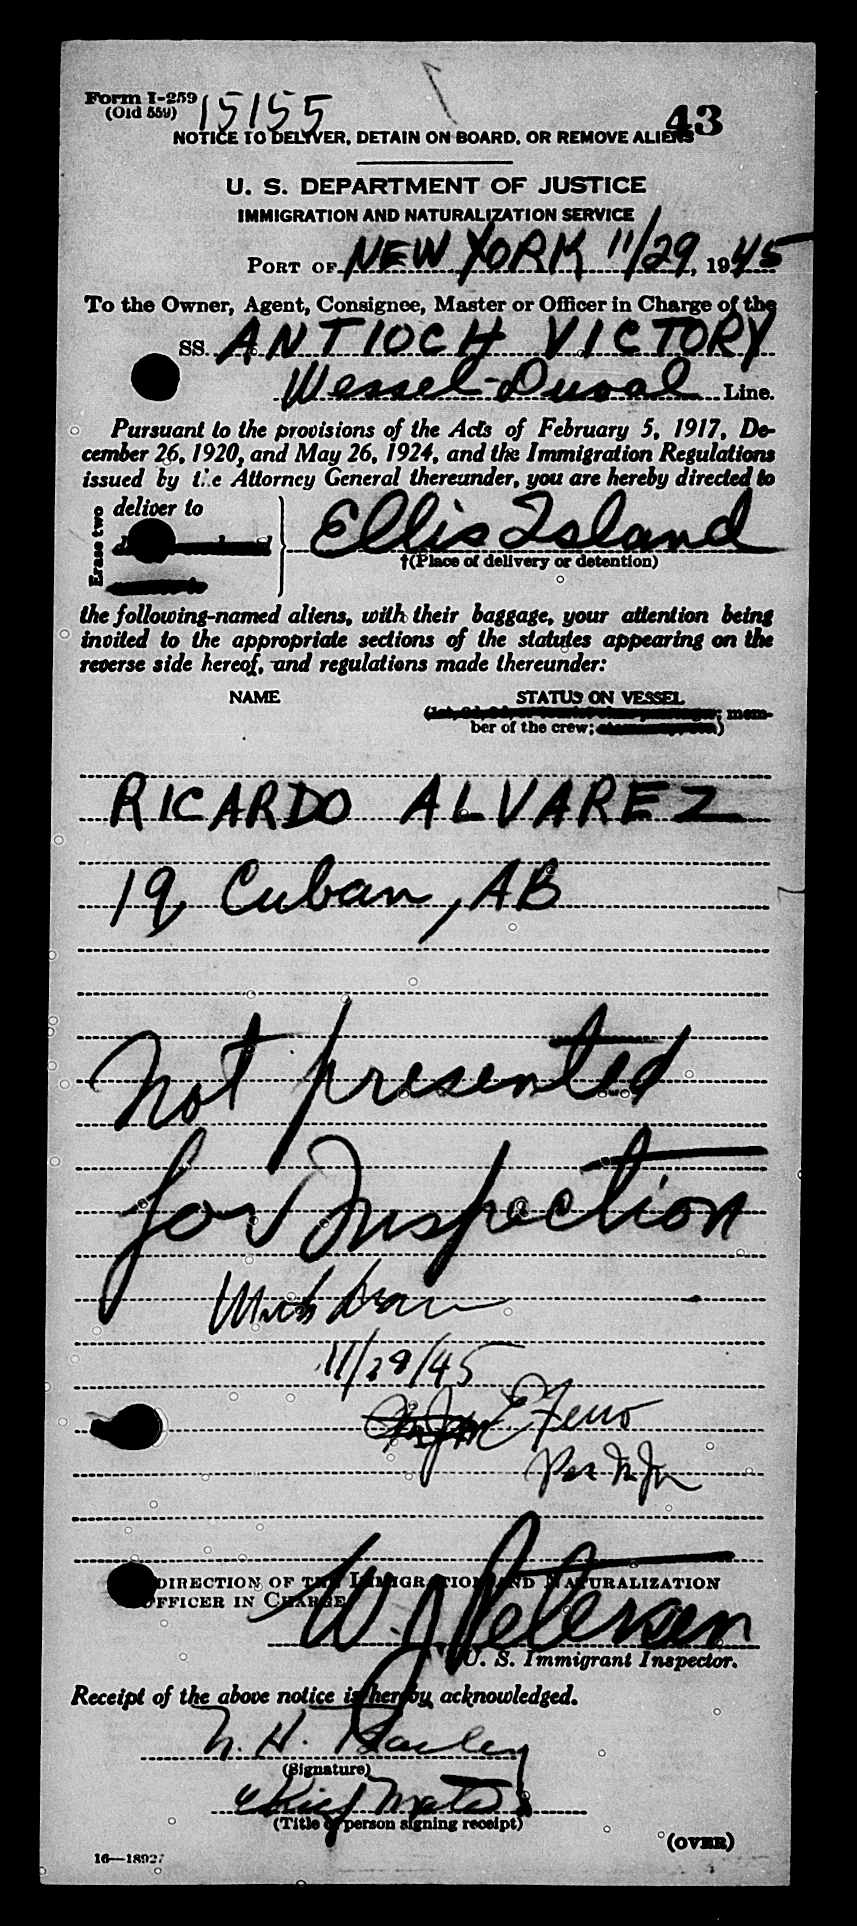 Form I-259
(Old 559)
15155
43
NOTICE TO DELIVER, DETAIN ON BOARD, OR REMOVE ALIENS
U. S. DEPARTMENT OF JUSTICE
IMMIGRATION AND NATURALIZATION SERVICE
PORT OF NEW YORK 11/29, 1945
To the Owner, Agent, Consignee, Master or Officer in Charge of the
SS. ANTIOCH VICTORY
Wessel-Duval Line.
Pursuant to the provisions of the Acts of February 5, 1917, De-
cember 26, 1920, and May 26, 1924, and the Immigration Regulations
issued by the Attorney General thereunder, you are hereby directed to
Erase two
deliver to
Ellis Island
†(Place of delivery or detention)
the following-named aliens, with their baggage, your attention being
invited to the appropriate sections of the statutes appearing on the
reverse side hereof, and regulations made thereunder:
NAME STATUS ON VESSEL
mem-
ber of the crew;
RICARDO ALVAREZ
19, Cuban, AB
Not presented
for Inspection
11/29/45
DIRECTION OF THE IMMIGRATION AND NATURALIZATION
OFFICER IN CHARGE
W. J. Petersen
U. S. Immigrant Inspector.
Receipt of the above notice is hereby acknowledged.
(Signature)
Chief Mate
(Title of person signing receipt)
(OVER)
16—18927